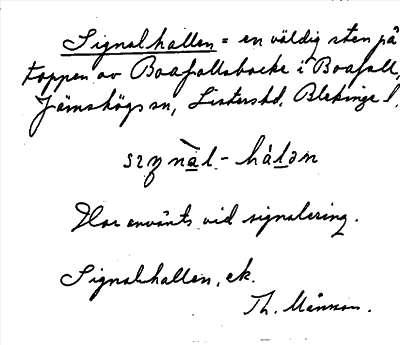 Signalhallen = en väldig sten på
toppen av Boafallsbacke i Boafall,
Jämshögs sn, Listers hd, Blekinge l.
sɪgnàl - hálən
Har använts vid signalering.
Signalhallen, ek.
Th. Månsson.